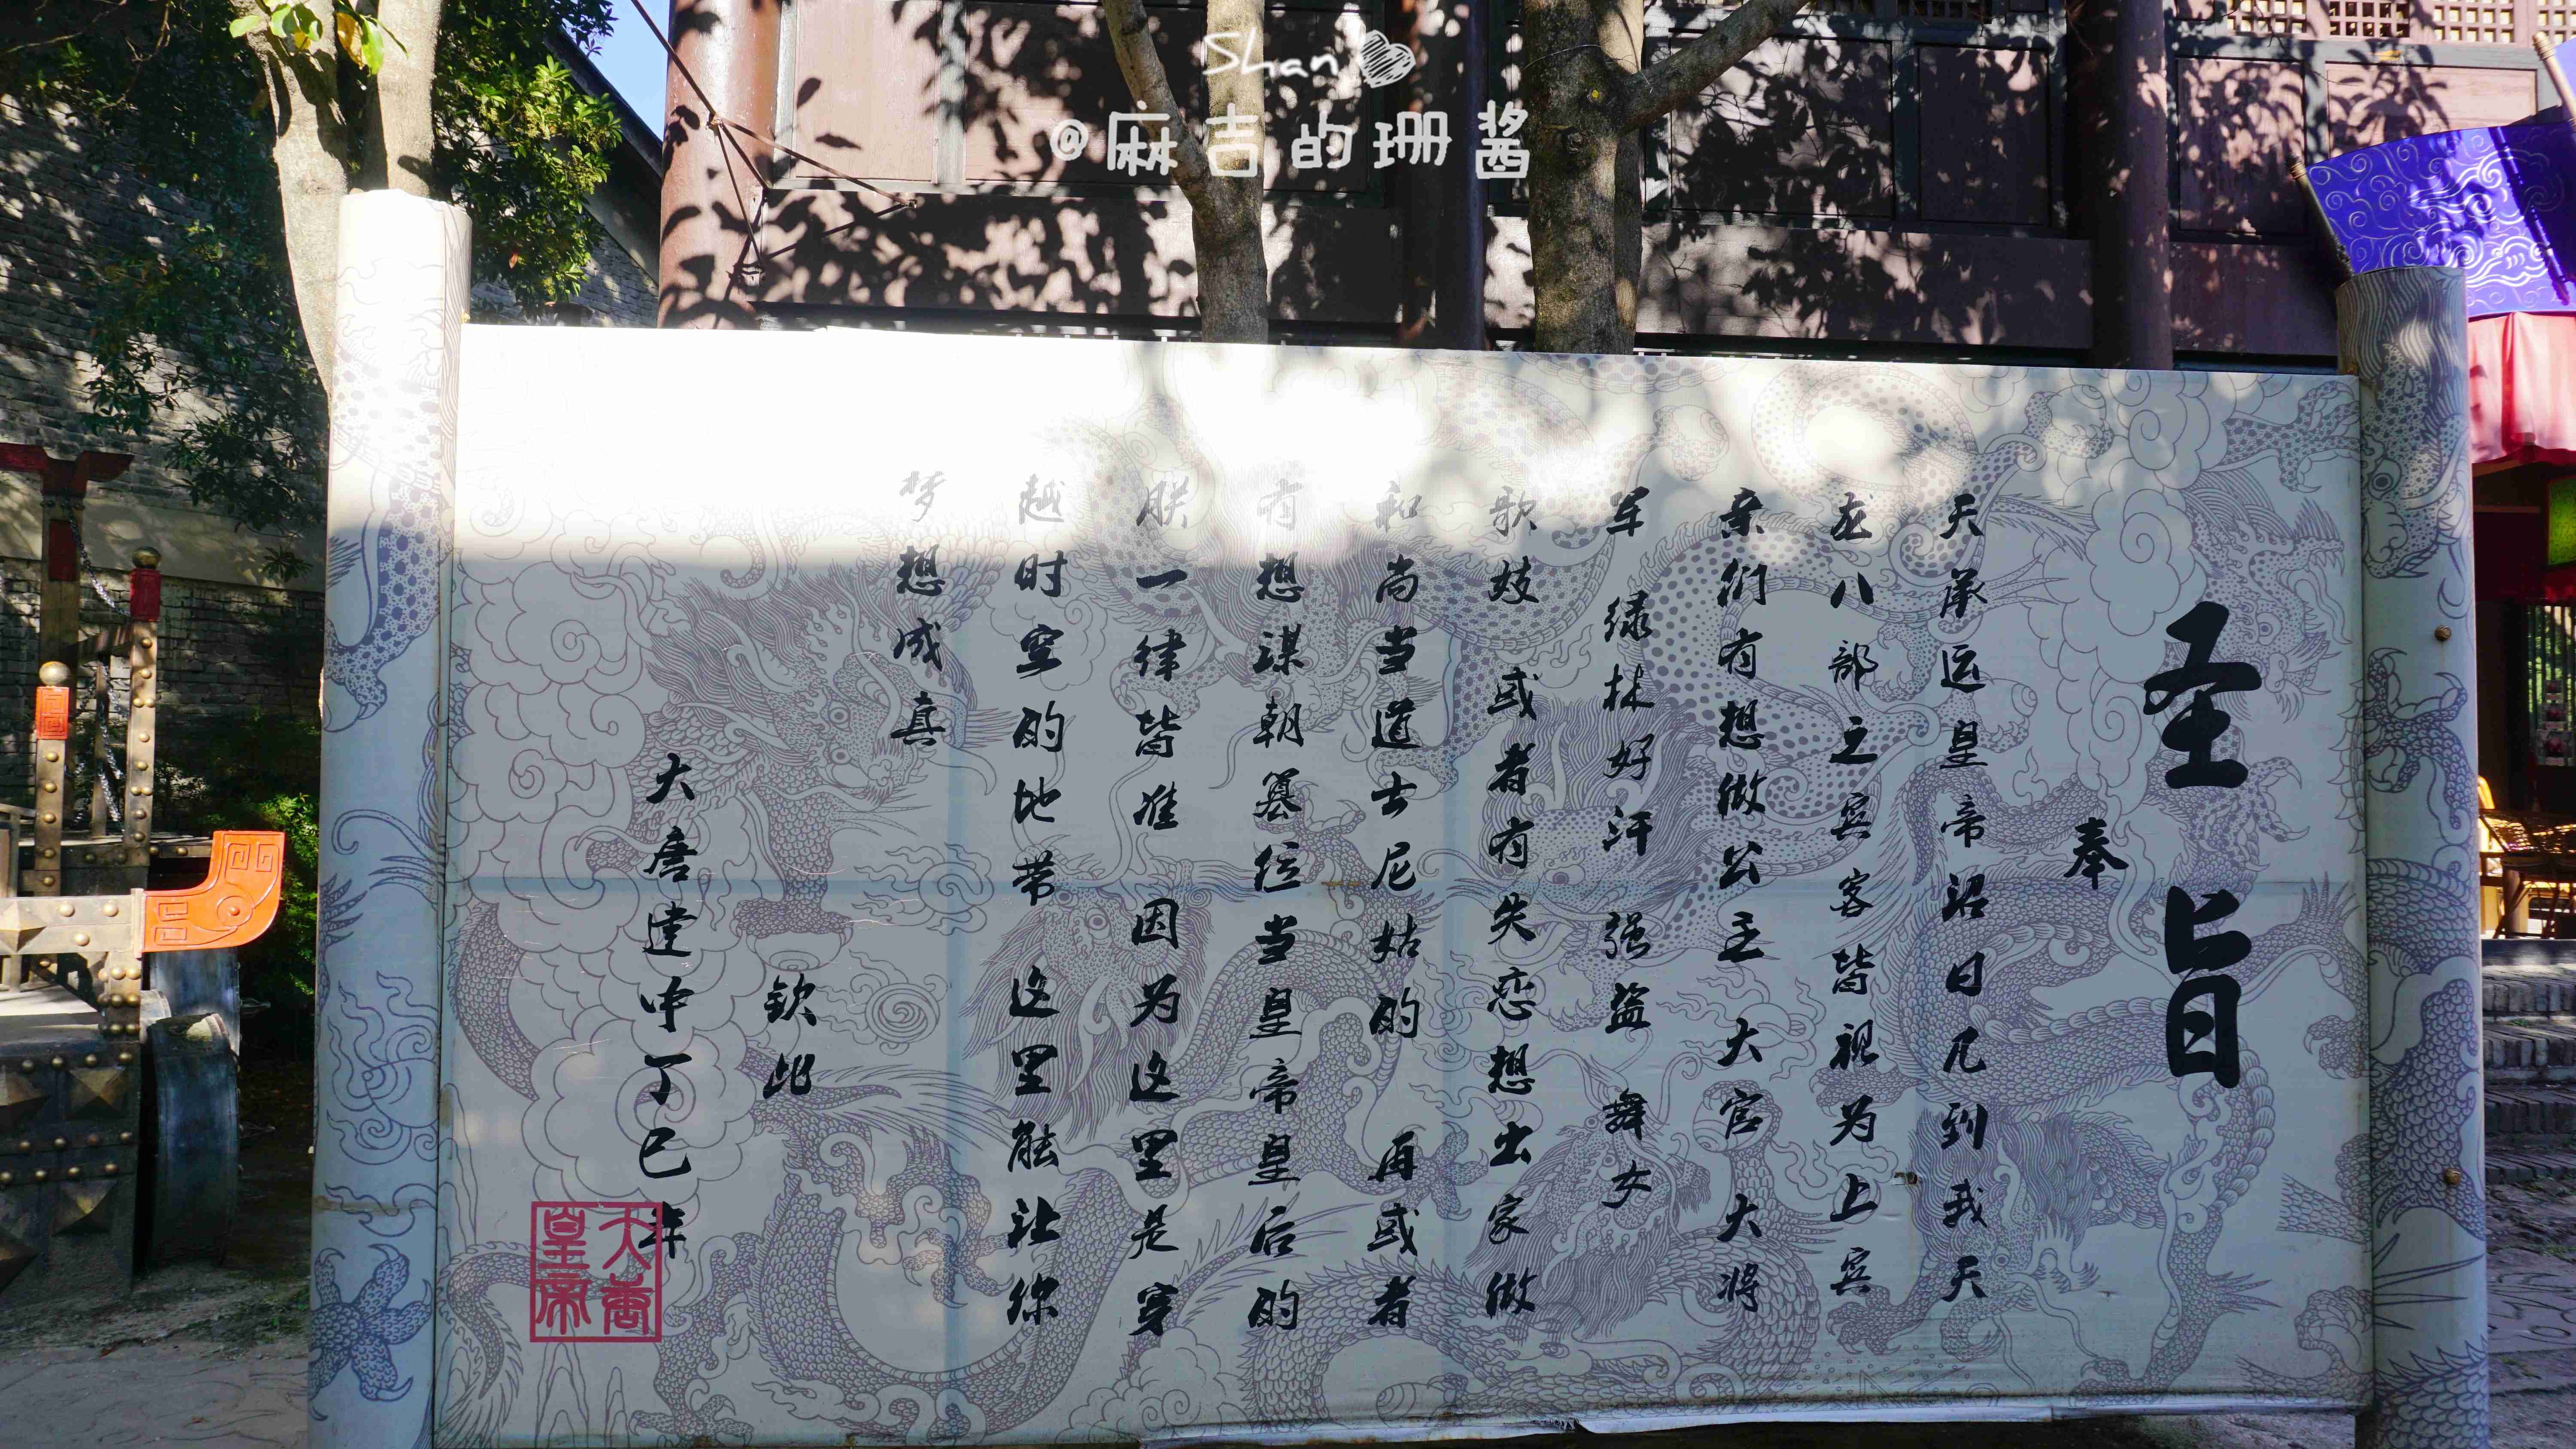 Shan
@麻吉的珊酱
圣旨
奉
天承运皇帝沼曰凡到我天
龙八部之宾客皆视为上宾
亲们有想做公主 大官 大将
军 绿林好汗 强盗 舞女
歌妓 或者有失恋想出家做
和尚当道士尼姑的 再或者
有想谋朝篡位当皇帝皇后的
朕一律皆准 因为这里是穿
越时空的地带 这里能让你
梦想成真
钦此
大唐建中丁巳年
大唐皇帝